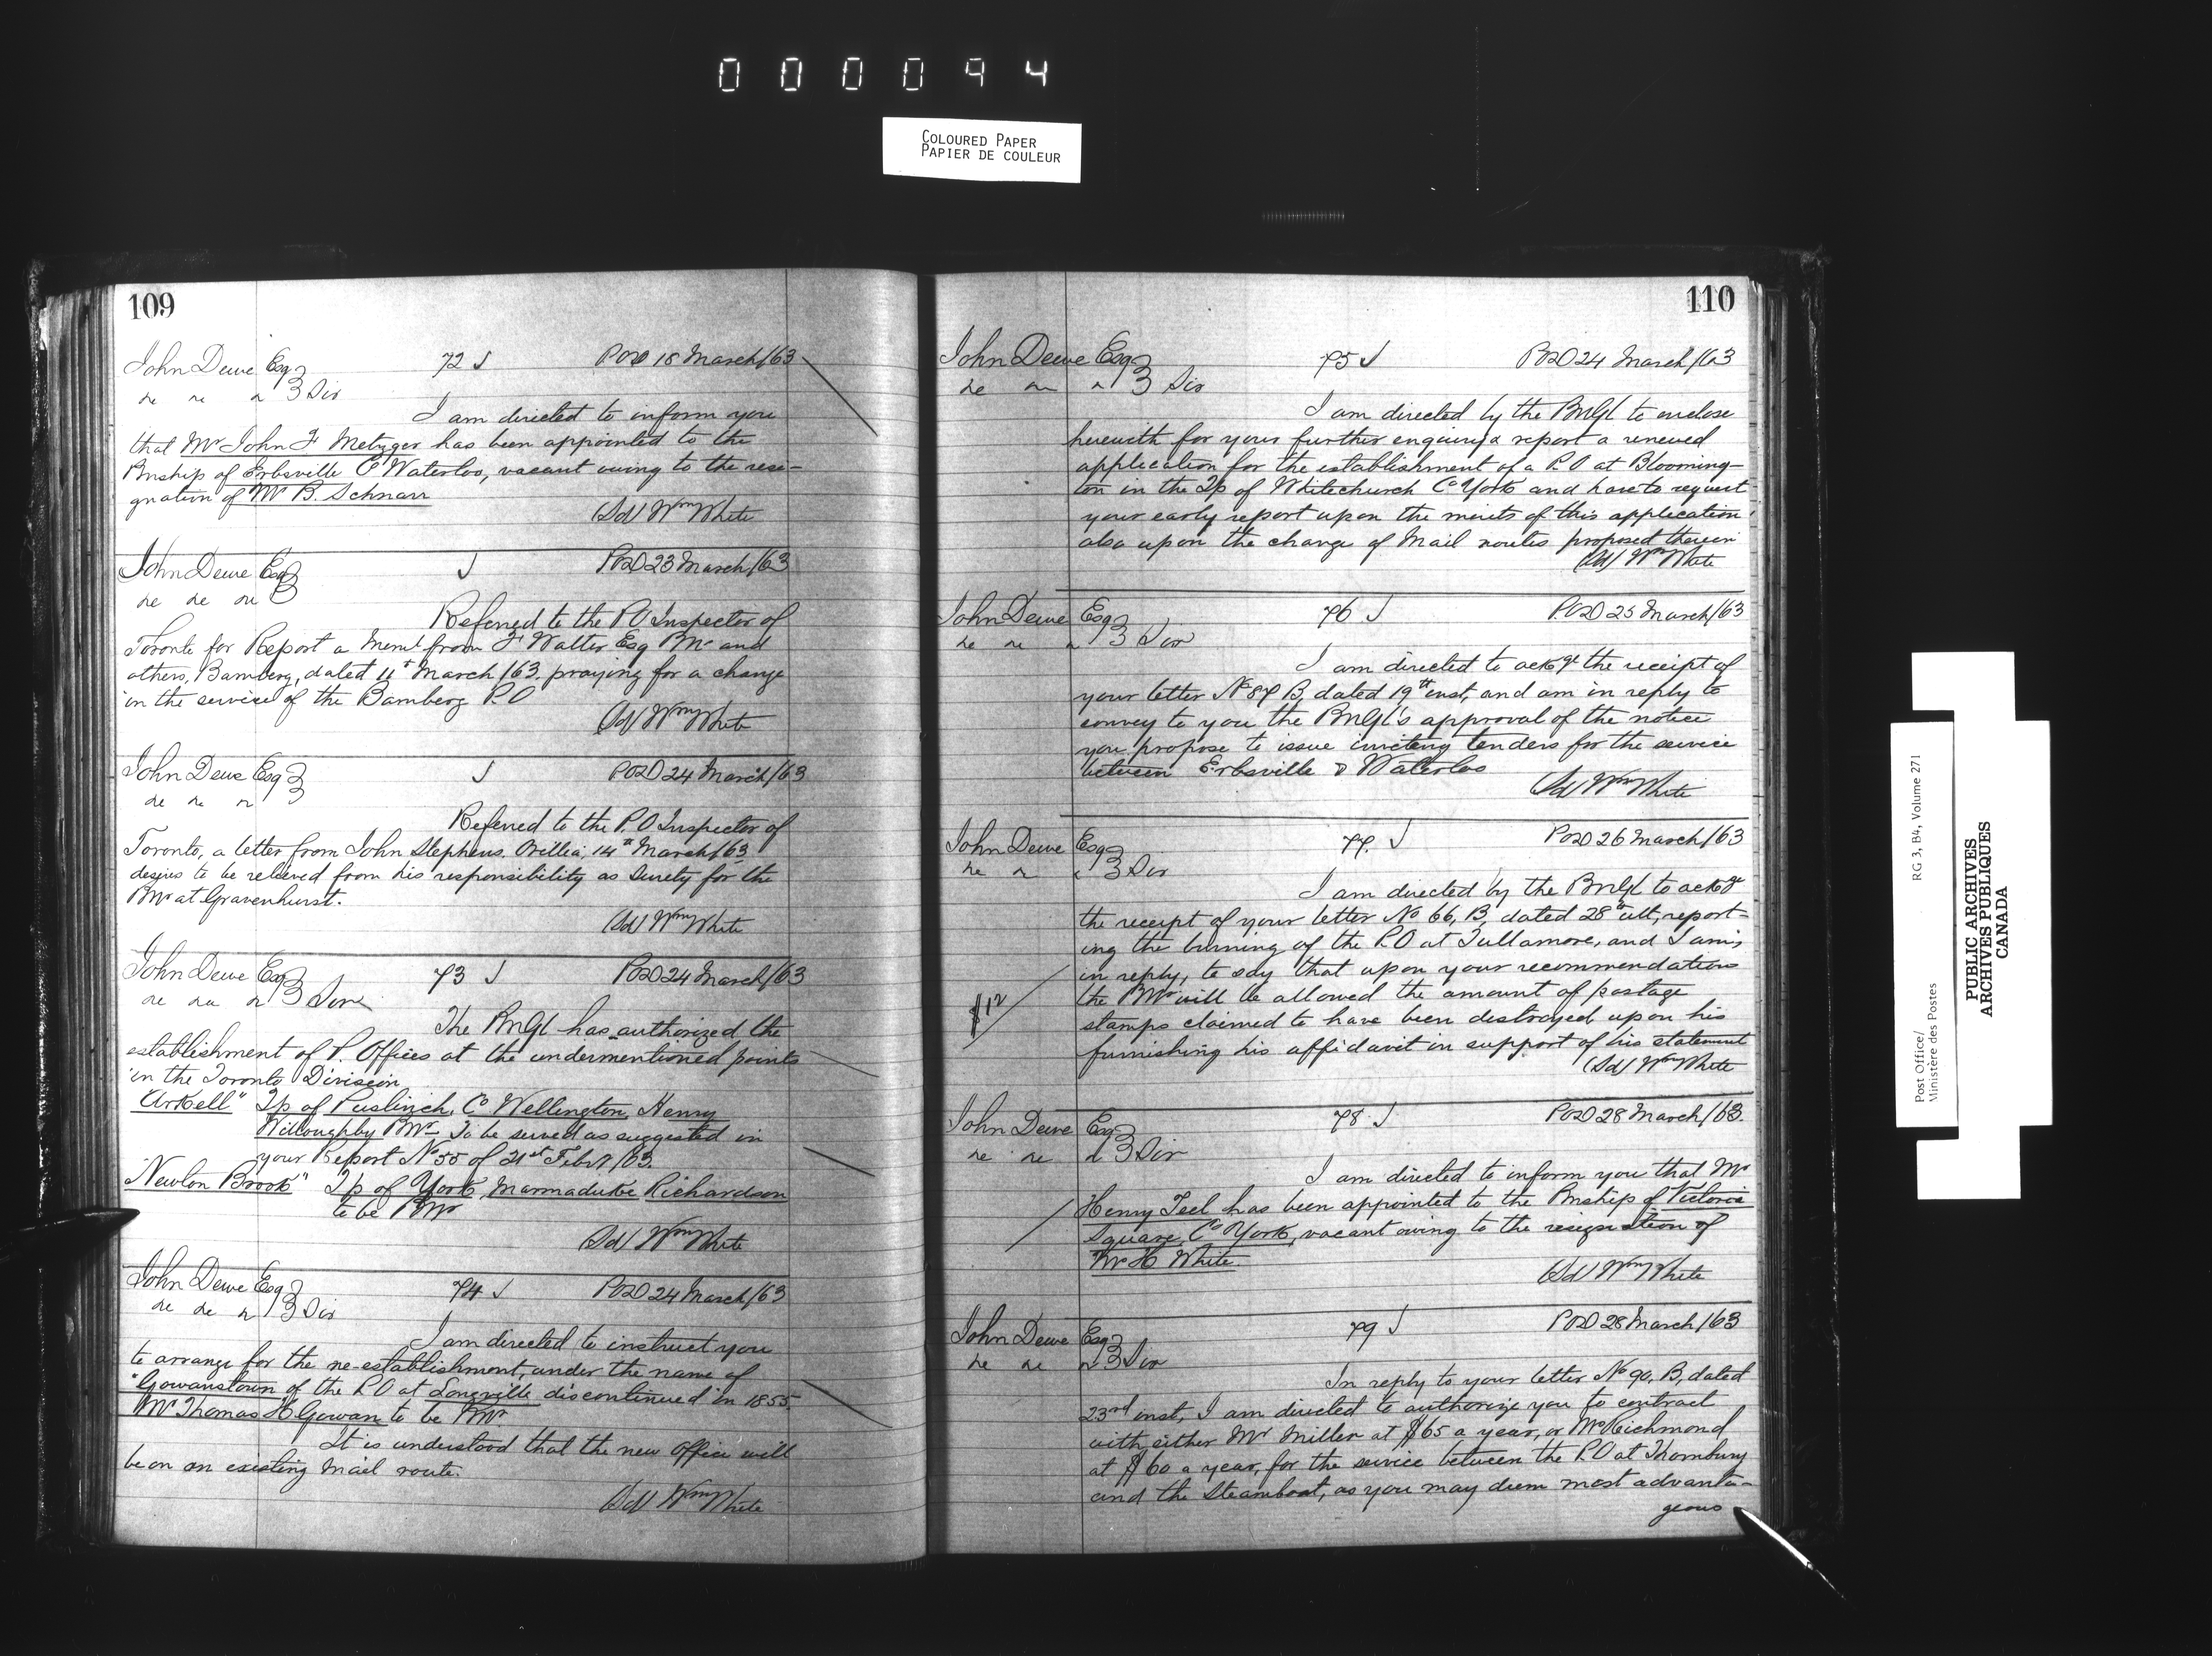 000094
COLOURED PAPER
PAPIER DE COULEUR
109
John Dewe Esq 72 J POD 18 March/63
3 Div
I am directed to inform you
that Mr John F Metzger has been appointed to the
Pmship of Erbsville Co Waterloo, vacant owing to the resi-
gnation of Mr B. Schnarr
(Sd) Wm White
John Dewe Esq J POD 23 March/63
Referred to the PO Inspector of
Toronto for Report a Meml from F Walter Esq PMr and
others, Bamberg, dated 11t March/63. praying for a change
in the service of the Bamberg P.O
(Sd) Wm White
John Dewe Esq J POD 24 March/63
Referred to the P.O Inspector of
Toronto, a letter from John Stephens, Orillia, 14th March/63,
desires to be relieved from his responsibility as Surety for the
PMr at Gravenhurst.
(Sd) Wm White
John Dewe Esq 73 J POD 24 March/63
3 Div
The PMGl has authorized the
establishment of P. Offices at the undermentioned points
in the Toronto Division
"Arkell" Tp of Puslinch, Co Wellington, Henry
Willoughby PMr To be served as suggested in
your Report No 55 of 21st Feby/63.
"Newton Brook" Tp of York Marmaduke Richardson
to be PMr
(Sd) Wm White
John Dewe Esq 74 J POD 24 March/63
3 Div
I am directed to instruct you
to arrange for the re-establishment, under the name of
"Gowanstown of the P.O at Longville discontinued in 1855.
Mr Thomas H Gowan to be PMr.
It is understood that the new office will
be on an existing Mail route.
(Sd) Wm White
110
John Dewe Esq 75 J POD 24 March/63
3 Div
I am directed by the PMGl to enclose
herewith for your further enquiry & report a renewed
application for the establishment of a P.O at Blooming-
ton in the Tp of Whitechurch Co York and have to request
your early report upon the merits of this application,
also upon the change of Mail routes proposed therein
(Sd) Wm White
John Dewe Esq 76 J POD 25 March/63
3 Div
I am directed to ackge the receipt of
your letter No 87 B, dated 19th inst, and am in reply to
convey to you the PMGl's approval of the notice
you propose to issue inviting tenders for the service
between Erbsville & Waterloo
(Sd) Wm White
John Dewe Esq 77. J POD 26 March/63
3 Div
I am directed by the PMGl to ackge
the receipt of your letter No 66, B, dated 28th ult, report-
ing the burning of the P.O at Tullamore, and I am,
in reply, to say that upon your recommendation
the PMr will be allowed the amount of postage
$12
stamps claimed to have been destroyed upon his
furnishing his affidavit in support of his statement
(Sd) Wm White
John Dewe Esq 78. J POD 28 March/63.
3 Div
I am directed to inform you that Mr
Henry Teel has been appointed to the Pmship of Victoria
Square, Co York, vacant owing to the resignation of
Mr H White.
(Sd) Wm White
John Dewe Esq 79 J POD 28 March/63
3 Div
In reply to your letter No 90, B, dated
23rd inst, I am directed to authorize you to contract
with either Mr Miller at $65 a year, or Mr Richmond
at $60 a year, for the service between the P.O at Thornbury
and the Steamboat, as you may deem most advanta-
geous
Post Office/
Ministère des Postes
RG 3, B4, Volume 271
PUBLIC ARCHIVES
ARCHIVES PUBLIQUES
CANADA